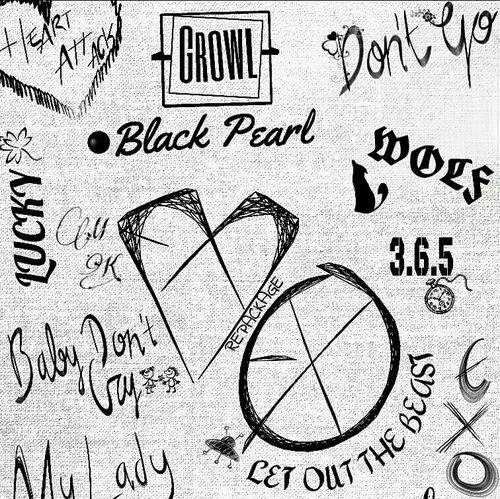 HEART
ATTACK
GROWL
Don't Go
Black Pearl
WOLF
LUCKY
3.6.5
REPACKAGE
Baby Don't
Cry
LET OUT THE BEAST
My Lady
EXO